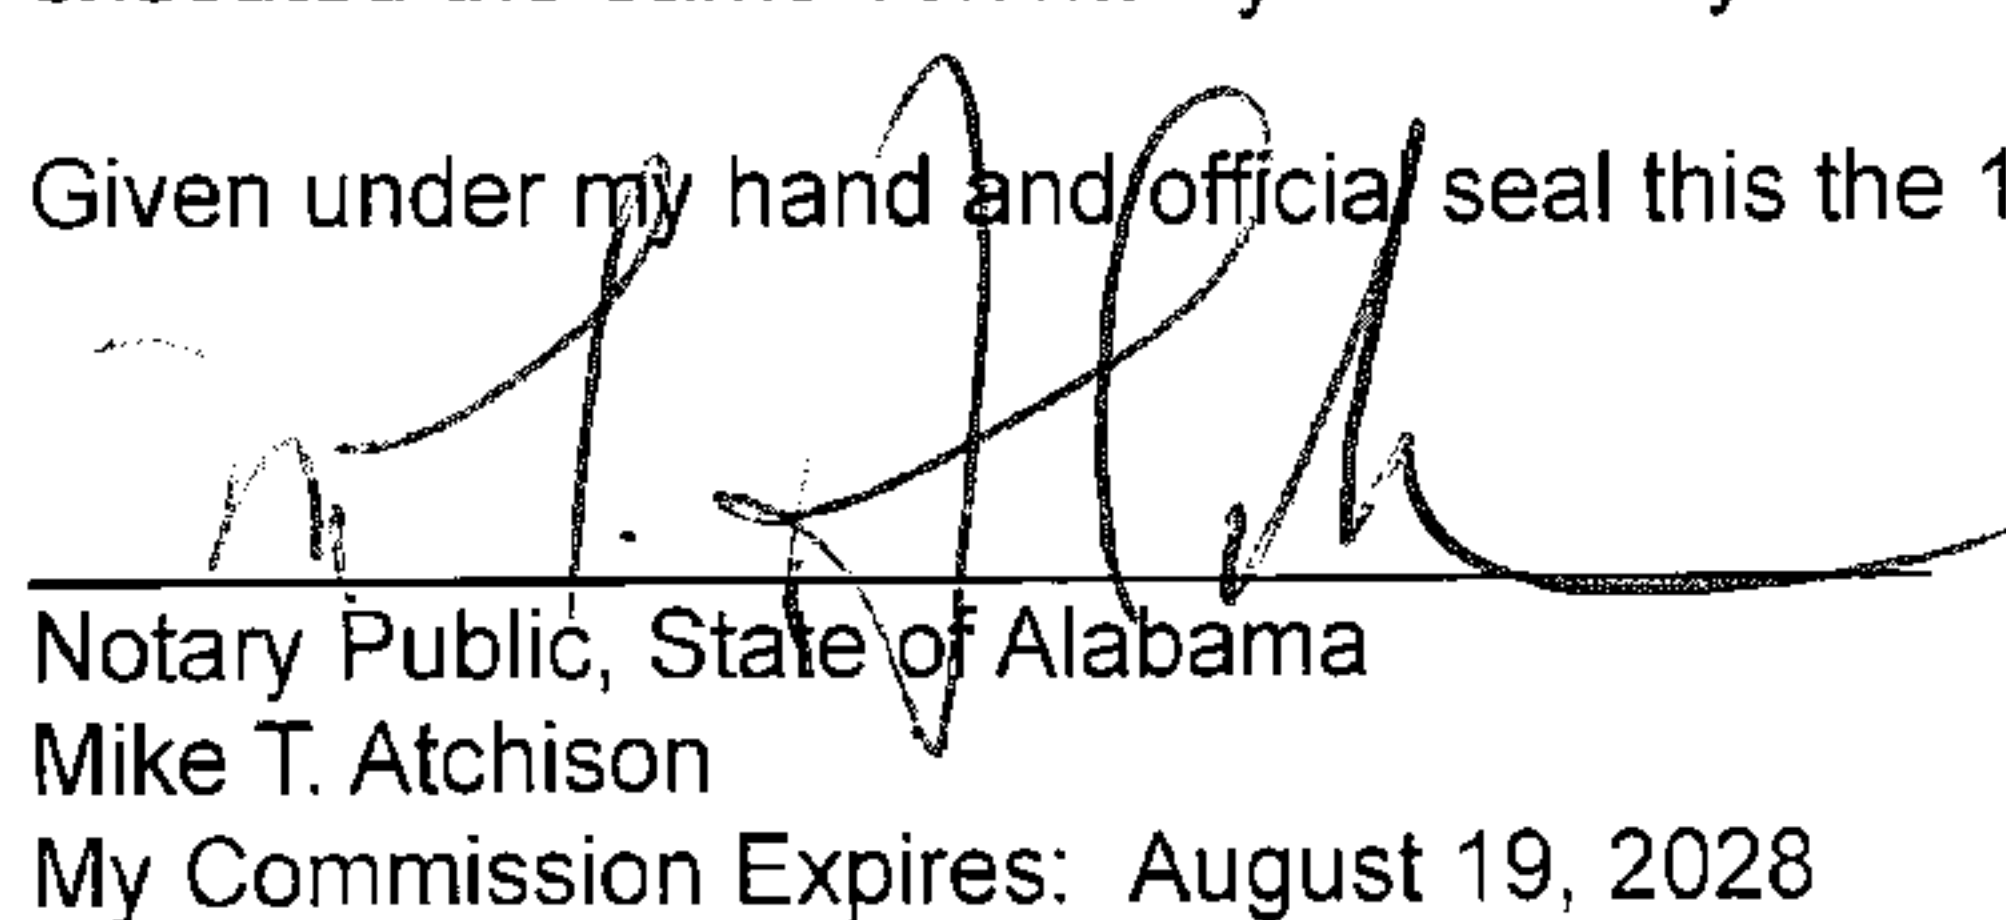 Given under my hand and official seal this the 1
Notary Public, State of Alabama
Mike T. Atchison
My Commission Expires: August 19, 2028